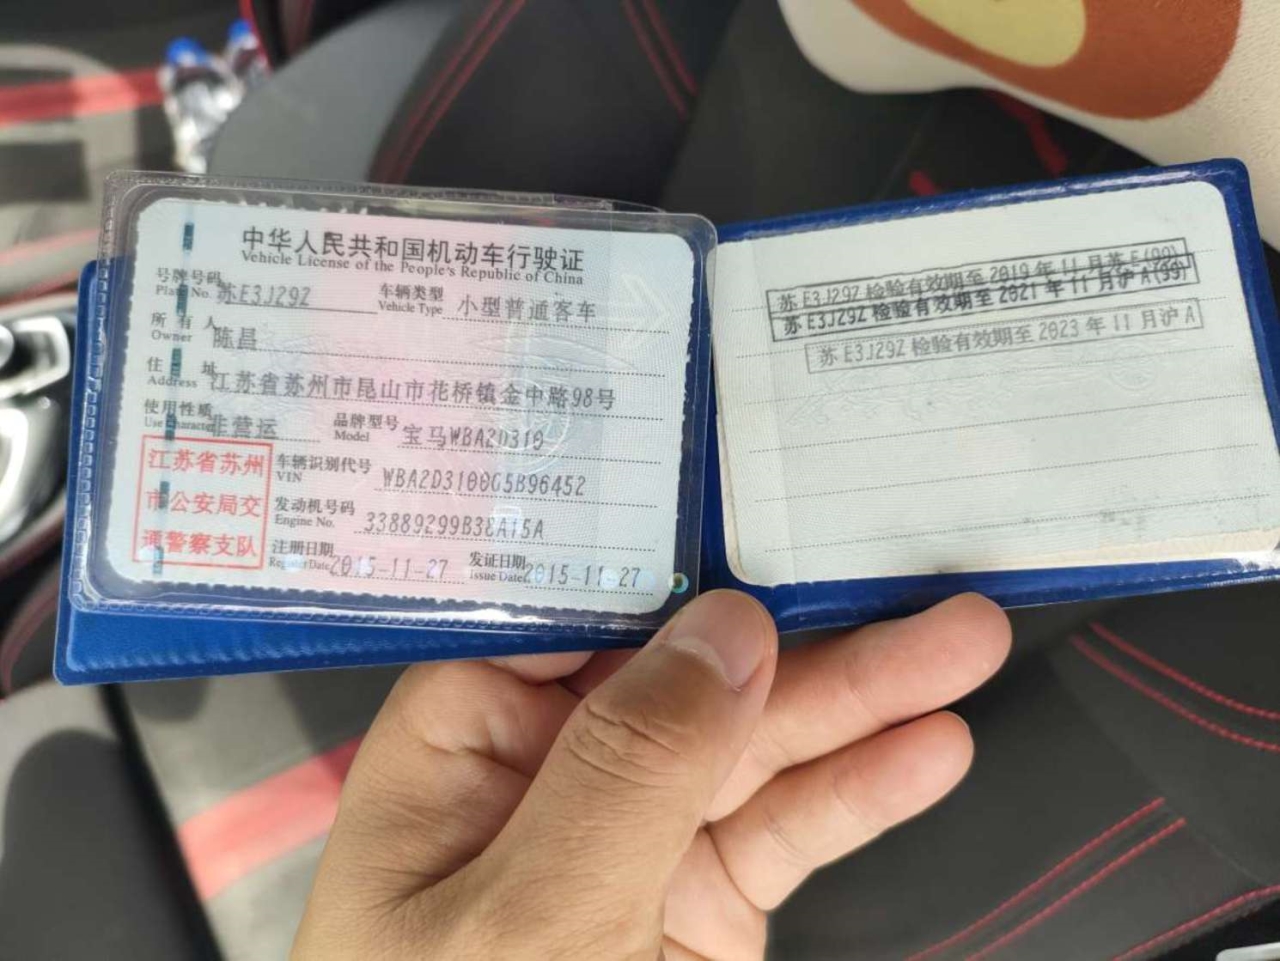 中华人民共和国机动车行驶证
Vehicle License of the People's Republic of China
号牌号码 苏E3J29Z 车辆类型 小型普通客车
Plate No. Vehicle Type
所有人 陈昌
Owner
住址 江苏省苏州市昆山市花桥镇金中路98号
Address
使用性质 非营运 品牌型号 宝马WBA2D310
Use Character Model
江苏省苏州
市公安局交
通警察支队
车辆识别代号 WBA2D3100G5B96452
VIN
发动机号码 33889299B38A15A
Engine No.
注册日期 2015-11-27 发证日期 2015-11-27
Register Date Issue Date
苏E3J29Z 检验有效期至 2019年11月苏E(99)
苏E3J29Z 检验有效期至 2021年11月沪A(99)
苏E3J29Z 检验有效期至 2023年11月沪A